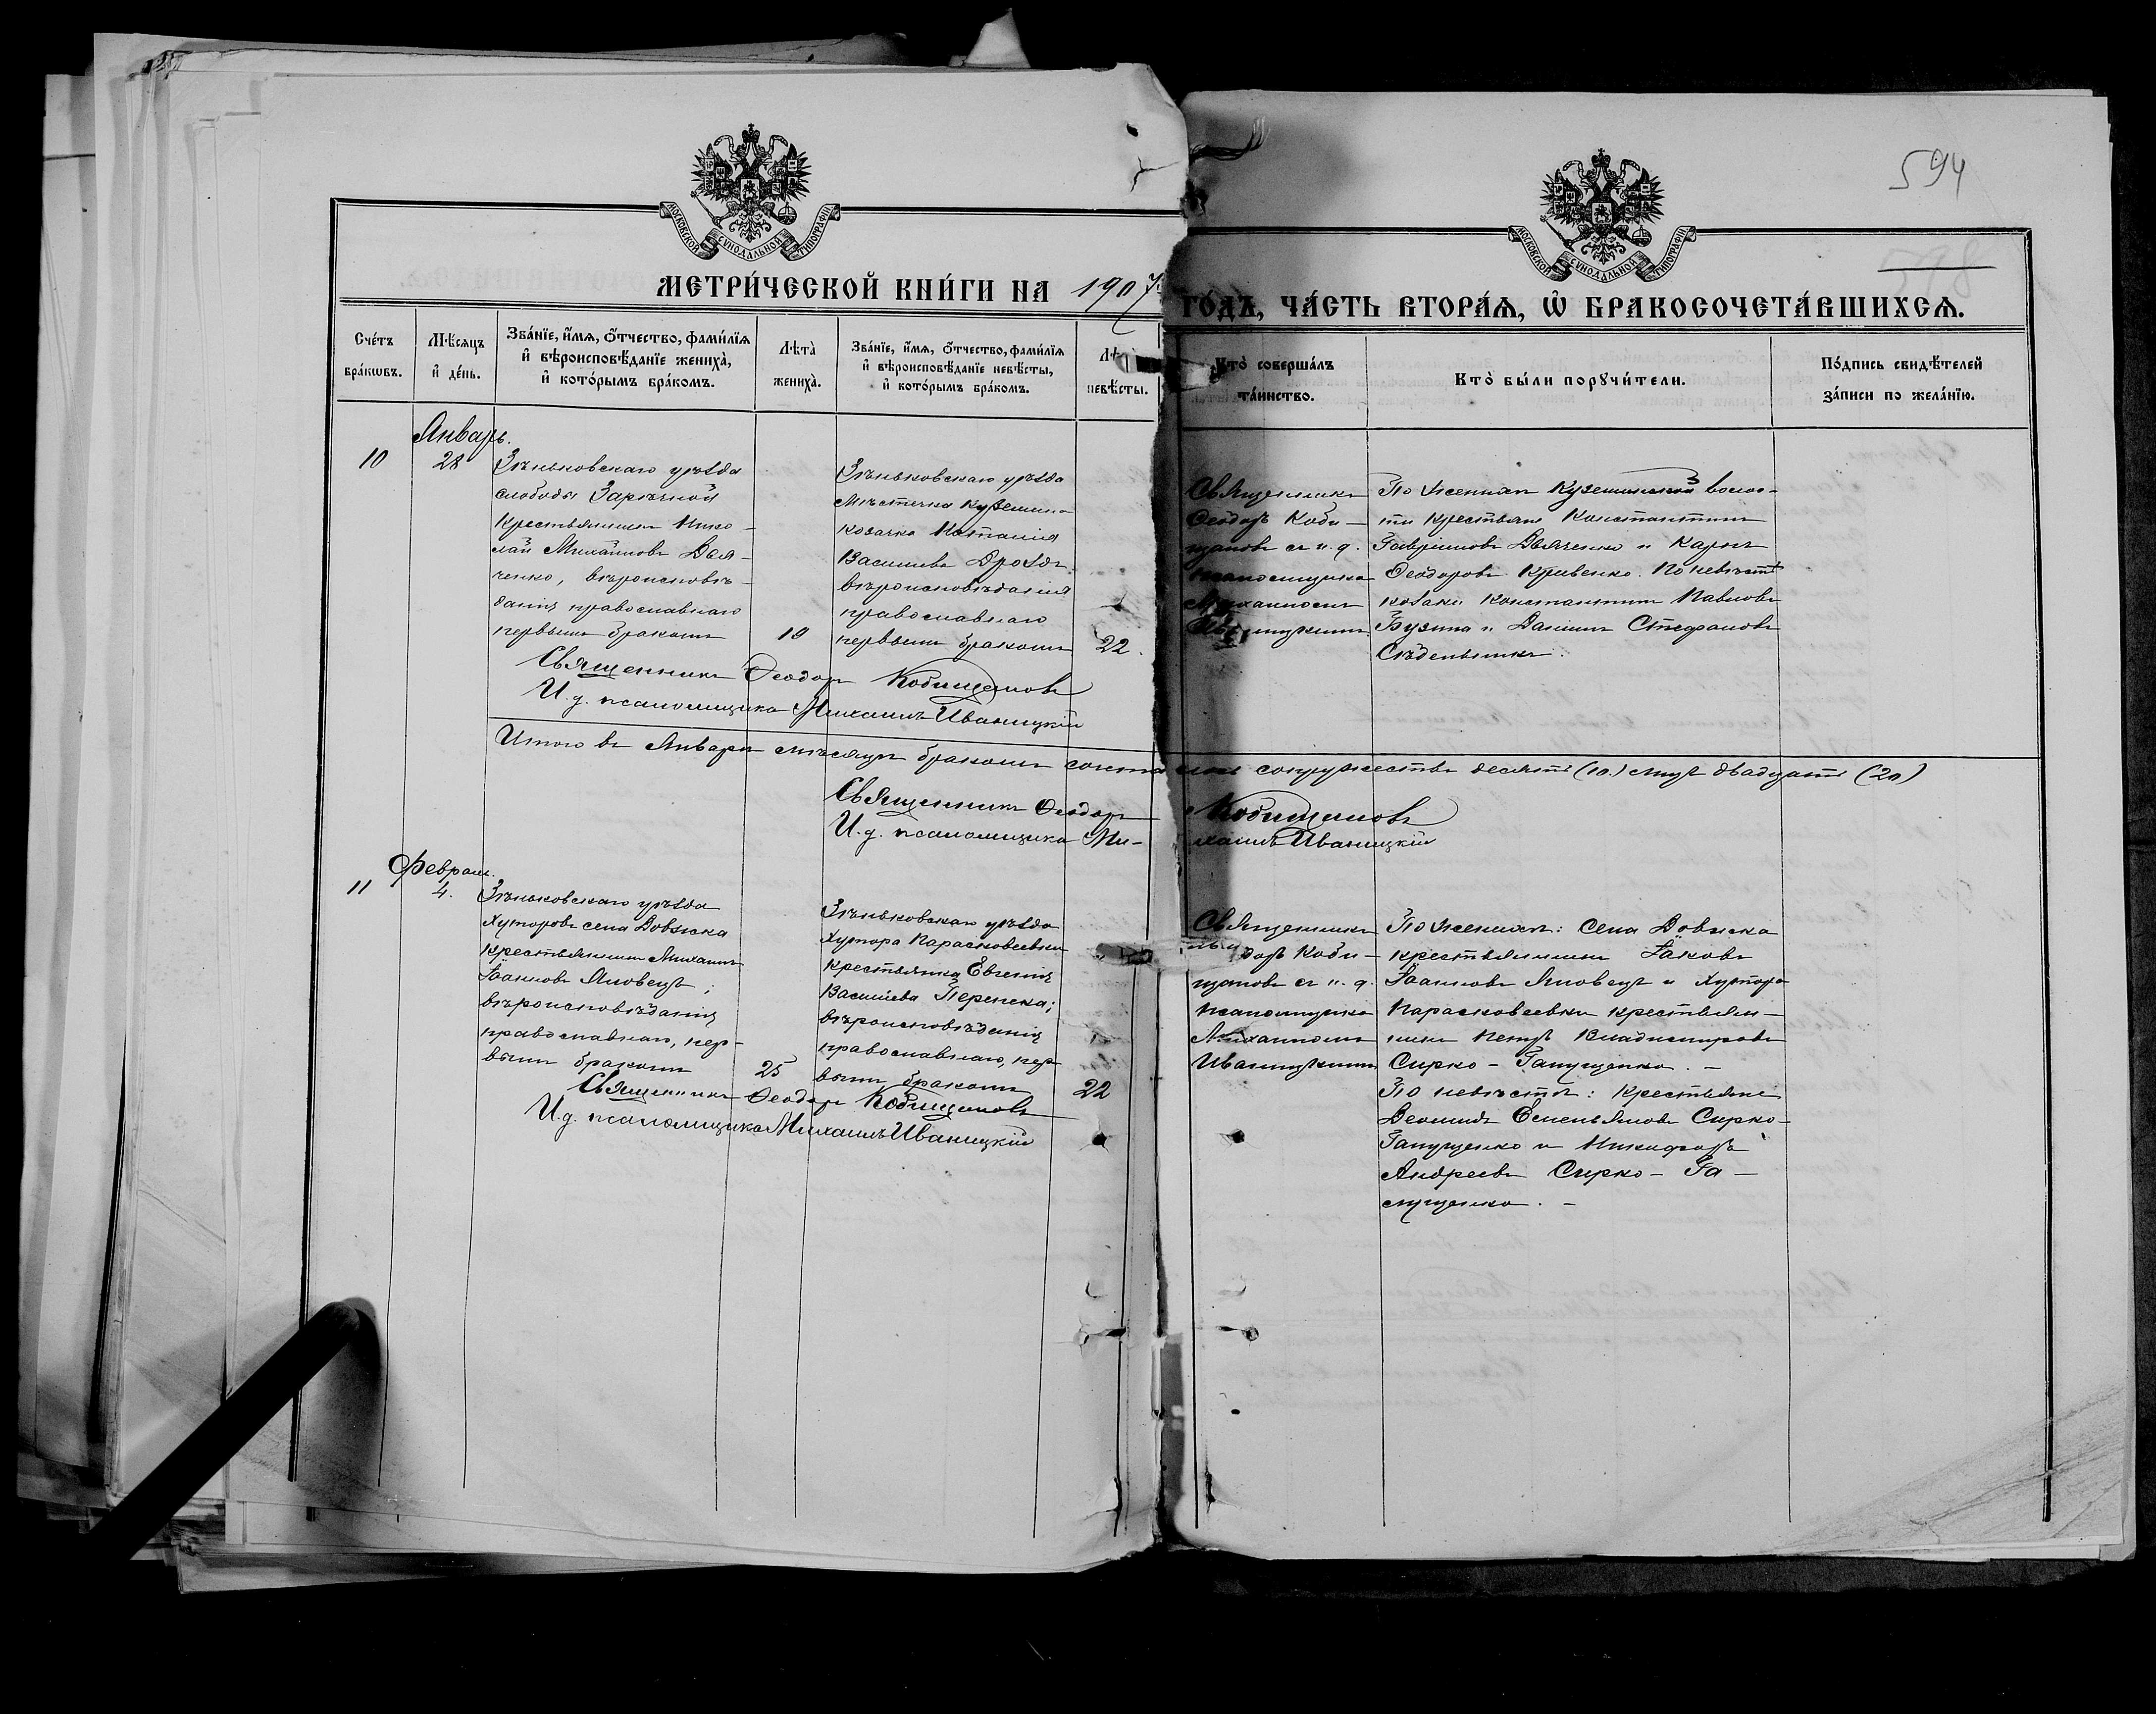 594
598
МОСКОВСКОЙ СѴНОДАЛЬНОЙ ТИПОГРАФІИ
МОСКОВСКОЙ СѴНОДАЛЬНОЙ ТИПОГРАФІИ
МЕТРИ́ЧЕСКОЙ КНИ́ГИ НА 1907
ГОДЪ, ЧА́СТЬ ВТОРА́Ѧ, Ѡ БРАКОСОЧЕТА́ВШИХСѦ.
Сче́тъ
бра́кѡвъ.
Мѣ́сяцъ
и де́нь.
Зва́нїе, и́мѧ, ѻ́тчество, фами́лїѧ
и҆ вѣроисповѣ́данїе жениха̀,
и҆ кото́рымъ бра́комъ.
Лѣта̀
жениха̀.
Зва́нїе, и́мѧ, ѻ́тчество, фами́лїѧ
и҆ вѣроисповѣ́данїе невѣ́сты,
и҆ кото́рымъ бра́комъ.
Лѣ
невѣ́сты.
Кто̀ соверша́лъ
та́инство.
Кто̀ бы́ли порꙋчи́тели.
По́дпись свидѣ́телей
за́писи по жела́нїю.
Январь.
10
28
Зѣньковскаго уѣзда
слободы Зарѣчной
крестьянинъ Нико-
лай Михаиловъ Дея-
ченко, вѣроисповѣ-
данія православнаго
первымъ бракомъ
19
Зѣньковскаго уѣзда
мѣстечка Куземина
козачка Наталія
Василіева Дроздъ
вѣроисповѣданія
православнаго
первымъ бракомъ
22.
Священникъ
Ѳеодоръ Коби-
щановъ съ и. д.
псаломщика
Михаиломъ
Иваницкимъ
По женихѣ Куземинской волос-
ти крестьяне Константинъ
Гавріиловъ Дьяченко и Карпъ
Ѳеодоровъ Кривенко. По невѣстѣ
козаки Константинъ Павловъ
Бузина и Даніилъ Стефановъ
Священникъ Ѳеодоръ Кобищановъ
И. д. псаломщика Михаилъ Иваницкій
Итого въ Январѣ мѣсяцѣ бракомъ сочета лось супружествъ десять (10) лицъ двадцать (20)
Священникъ Ѳеодоръ Кобищановъ
И. д. псаломщика Ми- хаилъ Иваницкій
Февраль.
11
4.
Зѣньковскаго уѣзда
хуторовъ села Довжка
крестьянинъ Михаилъ
Іоанновъ Яковецъ;
вѣроисповѣданія
православнаго, пер-
вымъ бракомъ
25
Зѣньковскаго уѣзда
хутора Парасковеевки
крестьянка Евгенія
Василіева Перепека;
вѣроисповѣданія
православнаго, пер
вымъ бракомъ
22
Священникъ
доръ Коби-
щановъ съ и. д.
псаломщика
Михаиломъ
Иваницкимъ
По женихѣ: села Довжка
крестьянинъ Іаковъ
Іоанновъ Яковецъ и хутора
Парасковеевки крестьян-
инъ Петръ Владиміровъ
Сирко-Гапущенко. -
По невѣстѣ: крестьяне
Леонидъ Емельяновъ Сирко-
Гапущенко и Никифоръ
Андреевъ Сирко-Га-
пущенко. -
Священникъ Ѳеодоръ Кобищановъ
И. д. псаломщика Михаилъ Иваницкій